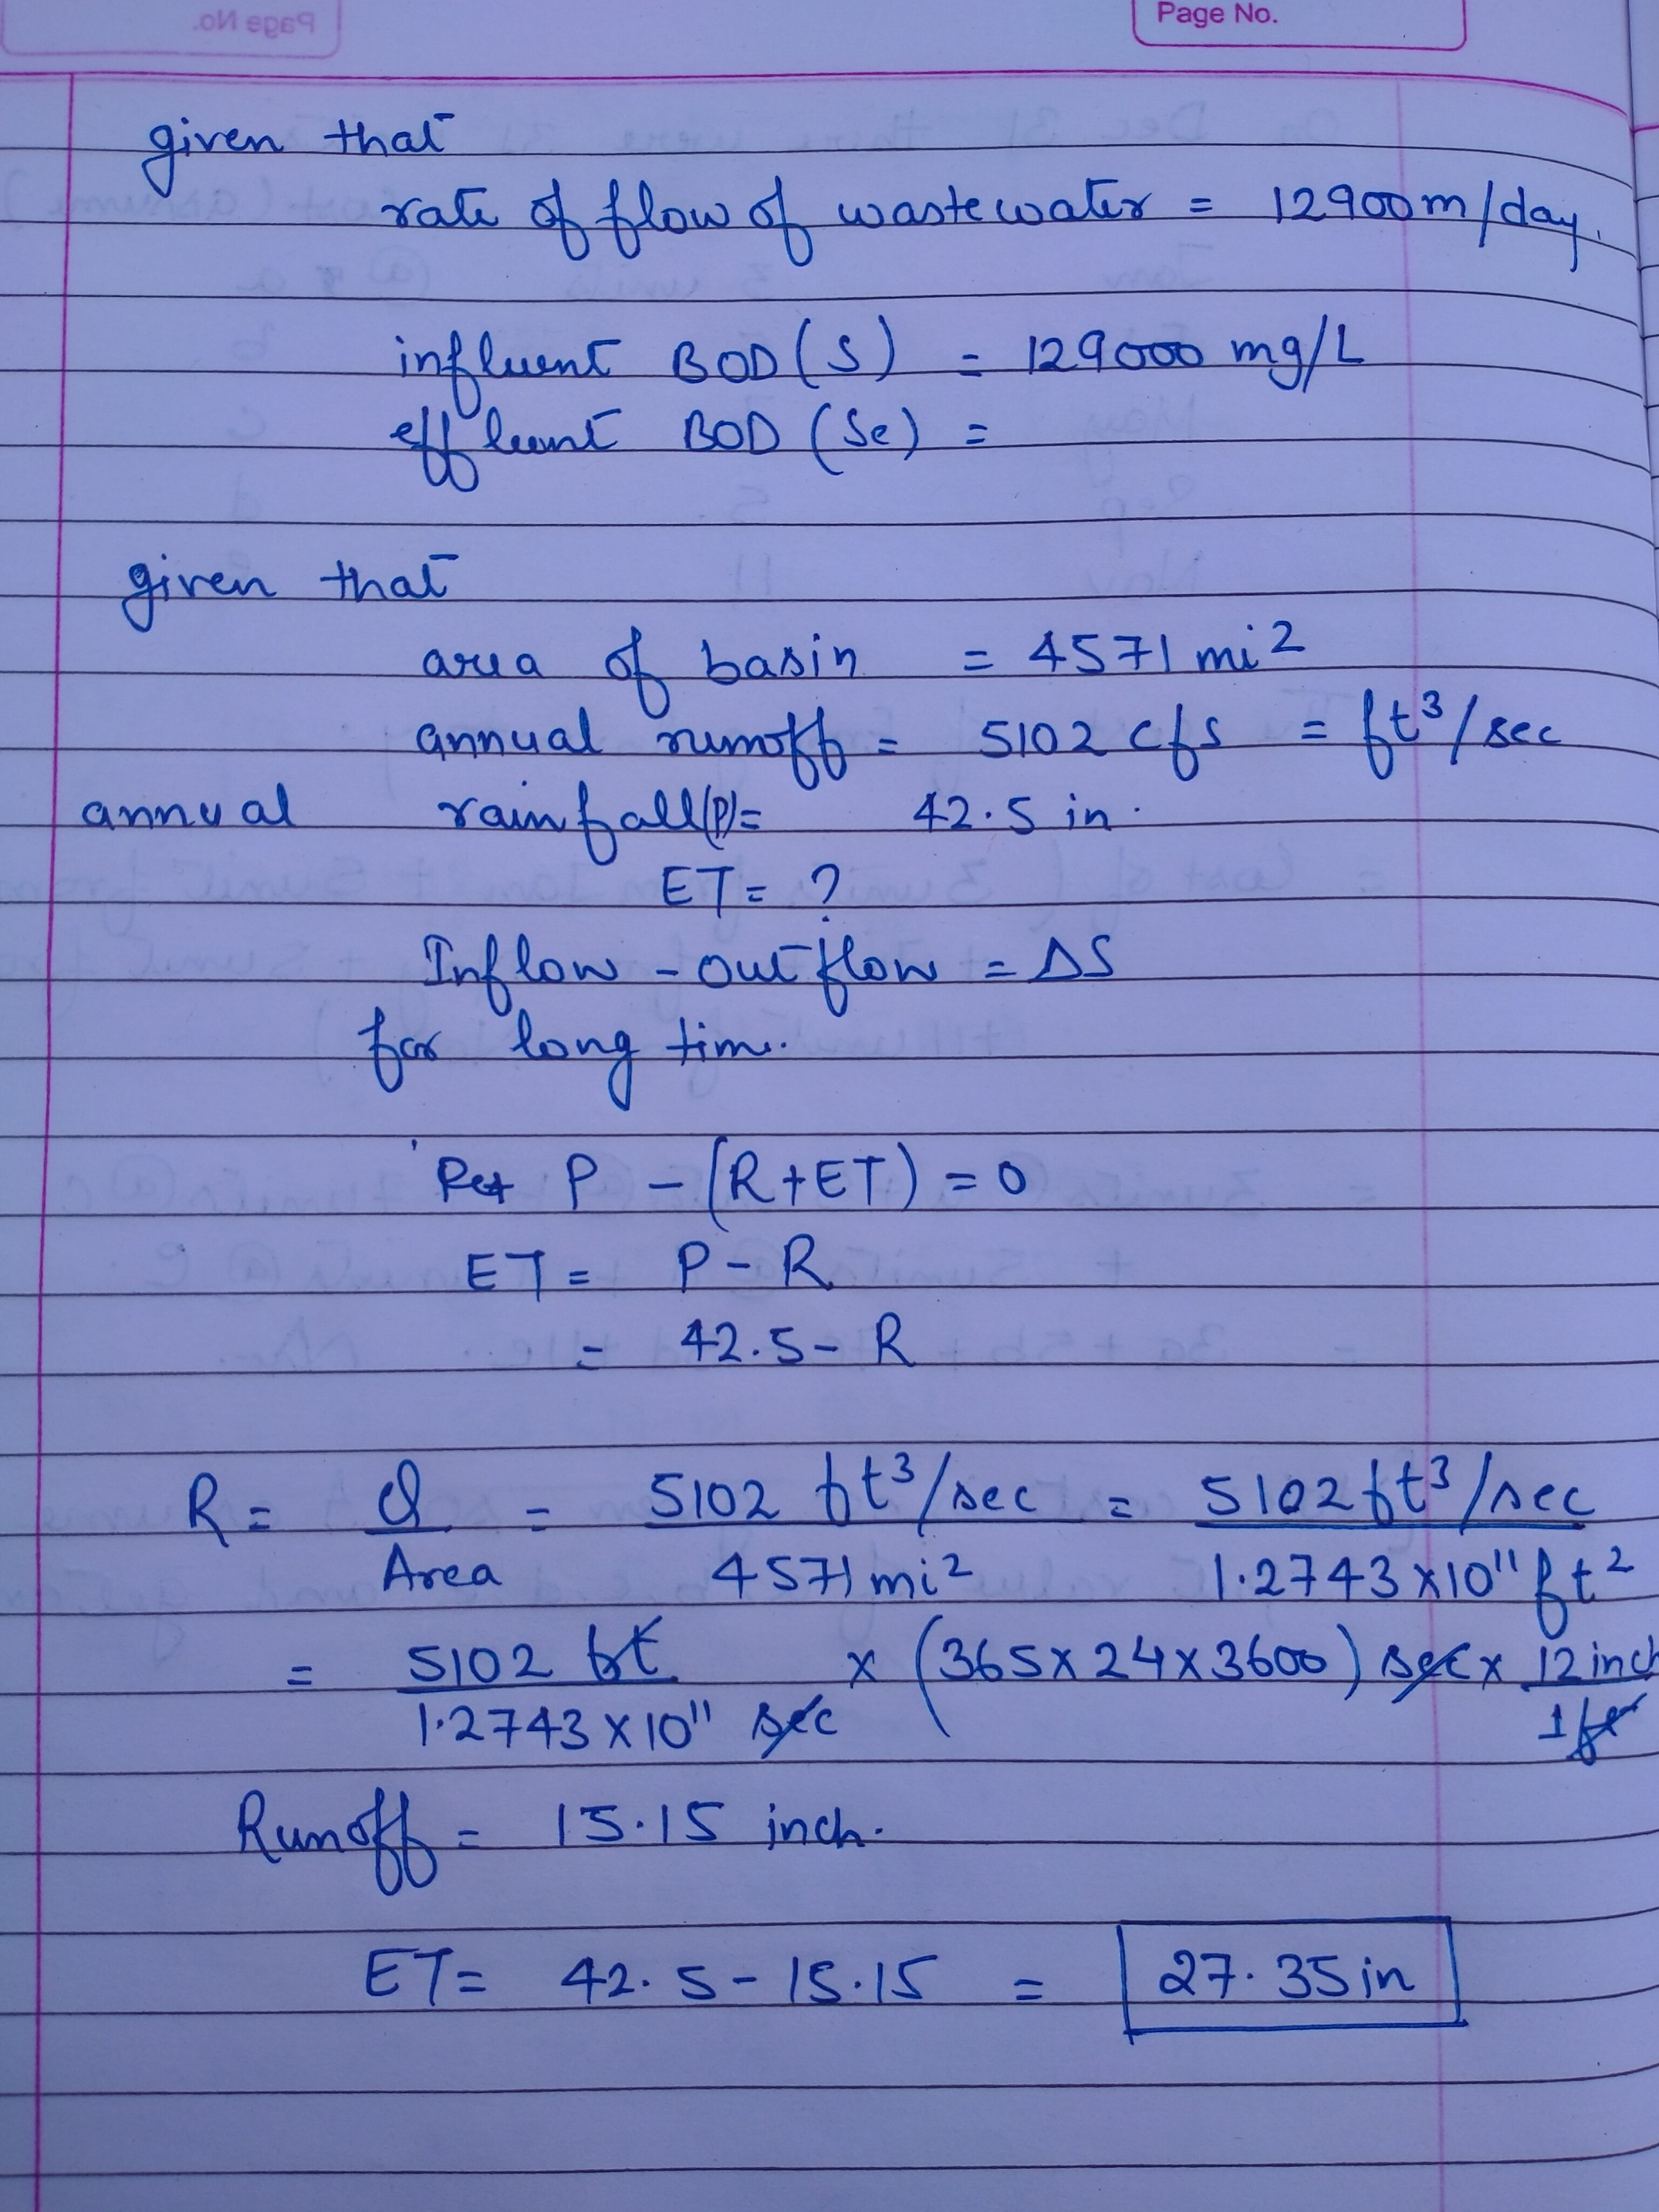 Page No.
given that
rate of flow of wastewater = 12900m/day.
influent BOD(S) = 129000 mg/L
effluent BOD (Se) =
given that
area of basin = 4571 mi²
annual runoff = 5102 cfs = ft³/sec
annual rainfall(P)= 42.5 in.
ET= ?
Inflow - outflow = ΔS
for long time.
P - (R+ET) = 0
ET = P - R
= 42.5 - R
R = Q/Area = 5102 ft³/sec / 4571 mi² = 5102 ft³/sec / 1.2743×10¹¹ ft²
= 5102 ft / 1.2743×10¹¹ sec × (365×24×3600) sec × 12 inch / 1 ft
Runoff = 15.15 inch.
ET= 42.5 - 15.15 = 27.35 in